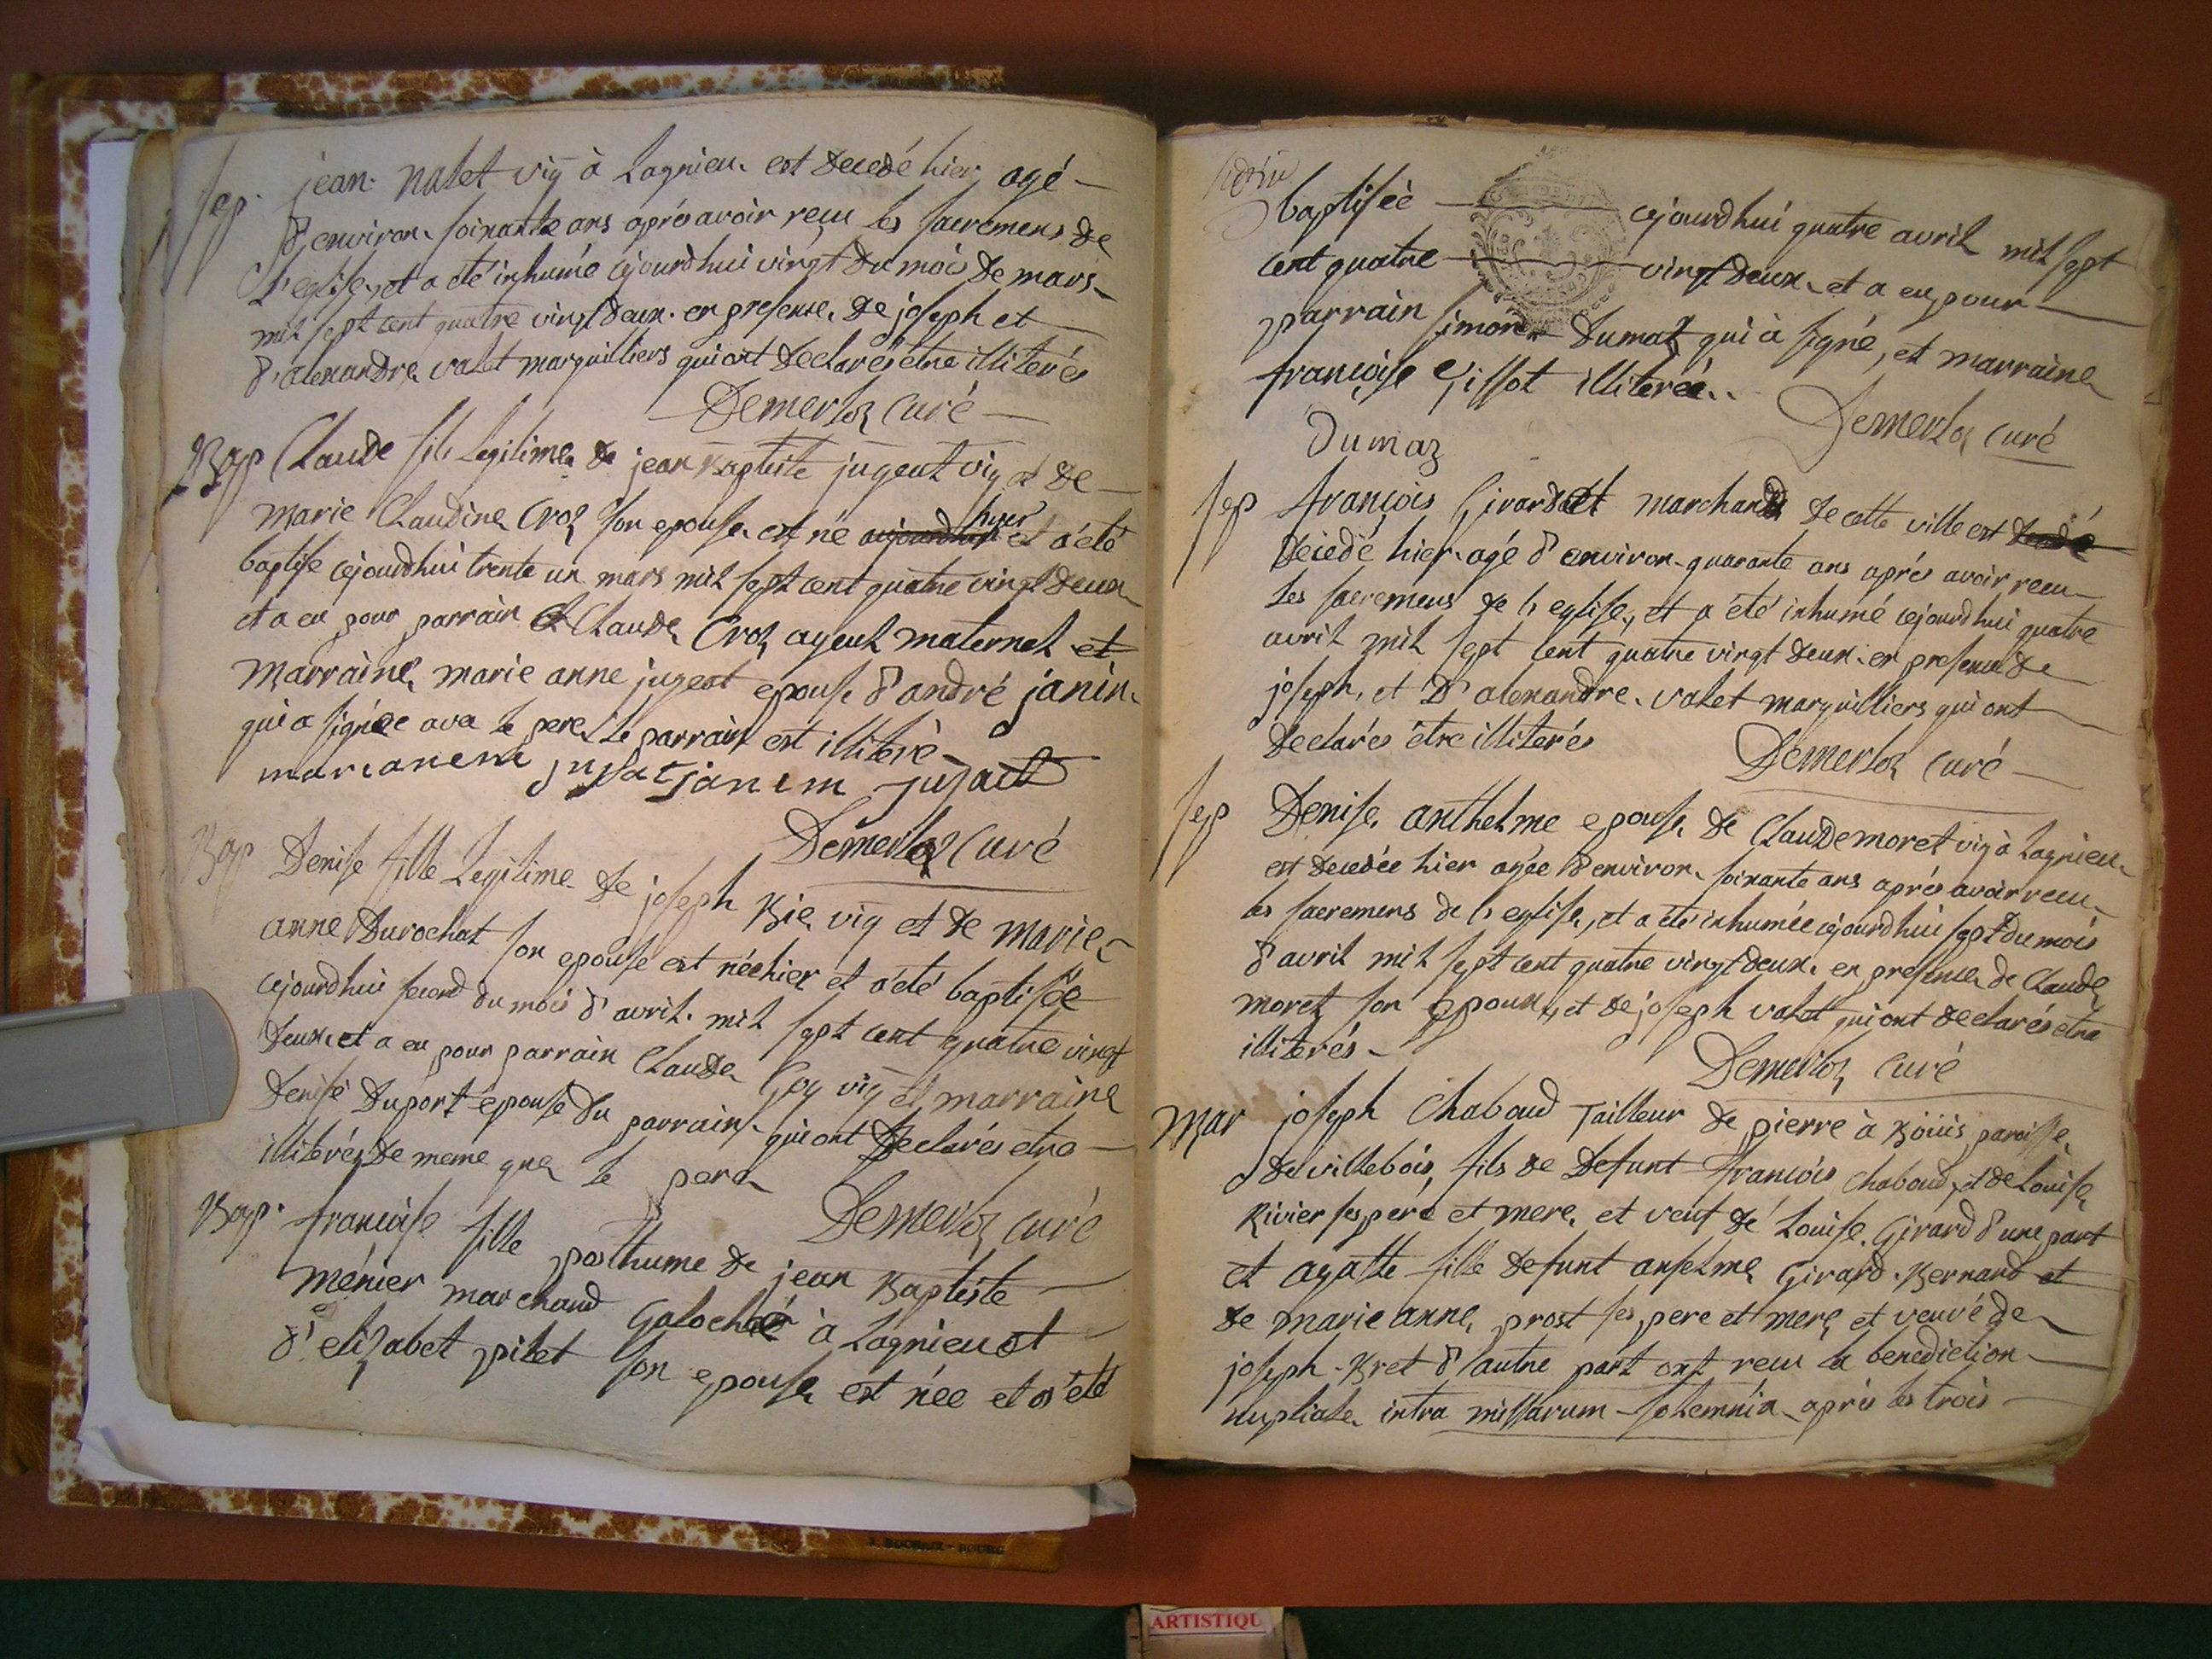 Sep. jean Nalet vig à Lagnieu est decedé hier agé
d'environ soixante ans après avoir reçu les sacremens de
l'eglise, et a été inhumé cejourdhui vingt du mois de mars
mil sept cent quatre vingt deux en presence de joseph et
d'alexandre valet marguilliers qui ont declarés être illiterés
Demerloz Curé
Bap Claude fils Legitime de jean Baptiste jugent vig et de
marie Claudine Croz son epouse est né hyer et a été
baptise cejourdhui trente un mars mil sept cent quatre vingt deux
et a eu pour parrain Claude Croz ayeul maternel et
marraine marie anne jugeat epouse d'andré janin
qui a signée avec le pere. le parrain est illiteré
marianene jugat janim jujat
Demerloz Curé
Bap Denise fille Legitime de joseph Bie vig et de marie
anne Durochat son epouse est née hier et a été baptisée
cejourdhui second du mois d'avril mil sept cent quatre vingt
deux et a eu pour parrain Claude Goy vig et marraine
Denise Duport epouse du parrain qui ont Declarés etre
illiterés de meme que le pere
Demerloz Curé
Bap. francoise fille posthume de jean Baptiste
ménier marchand Galocher à Lagnieu et
d'elizabet pitet son epouse est née et a été
baptisée cejourdhui quatre avril mil sept
cent quatre vingt deux et a eu pour
parrain simon Dumaz qui à signé, et marraine
francoise Gissot illiterée.
Demerloz Curé
Dumaz
Sep francois Girardet marchand de cette ville est
decedé hier agé d'environ quarante ans après avoir reçu
les sacremens de l'eglise, et a été inhumé cejourdhui quatre
avril mil sept cent quatre vingt deux en presence de
joseph, et D'alexandre valet marguilliers qui ont
declarés être illiterés
Demerloz Curé
Sep Denise anthelme epouse de Claude moret vig à Lagnieu
est decedée hier agée d'environ soixante ans après avoir reçu
les sacremens de l'eglise, et a été inhumée cejourdhui sept du mois
d'avril mil sept cent quatre vingt deux en presence de Claude
moret son epoux, et de joseph valet qui ont declarés etre
illiterés
Demerloz Curé
Mar joseph Chabaud Tailleur de pierre à Boüis paroisse
de villebois, fils de Defunt francois Chabaud, et de Louise
Rivier ses pere et mere, et veuf de Louise Girard d'une part
et agathe fille defunt anselme Girard Bernard et
de marie anne prost ses pere et mere et veuve de
joseph Bret d'autre part ont reçu la benediction
nuptiale intra missarum solemnia après les trois
ARTISTIQU